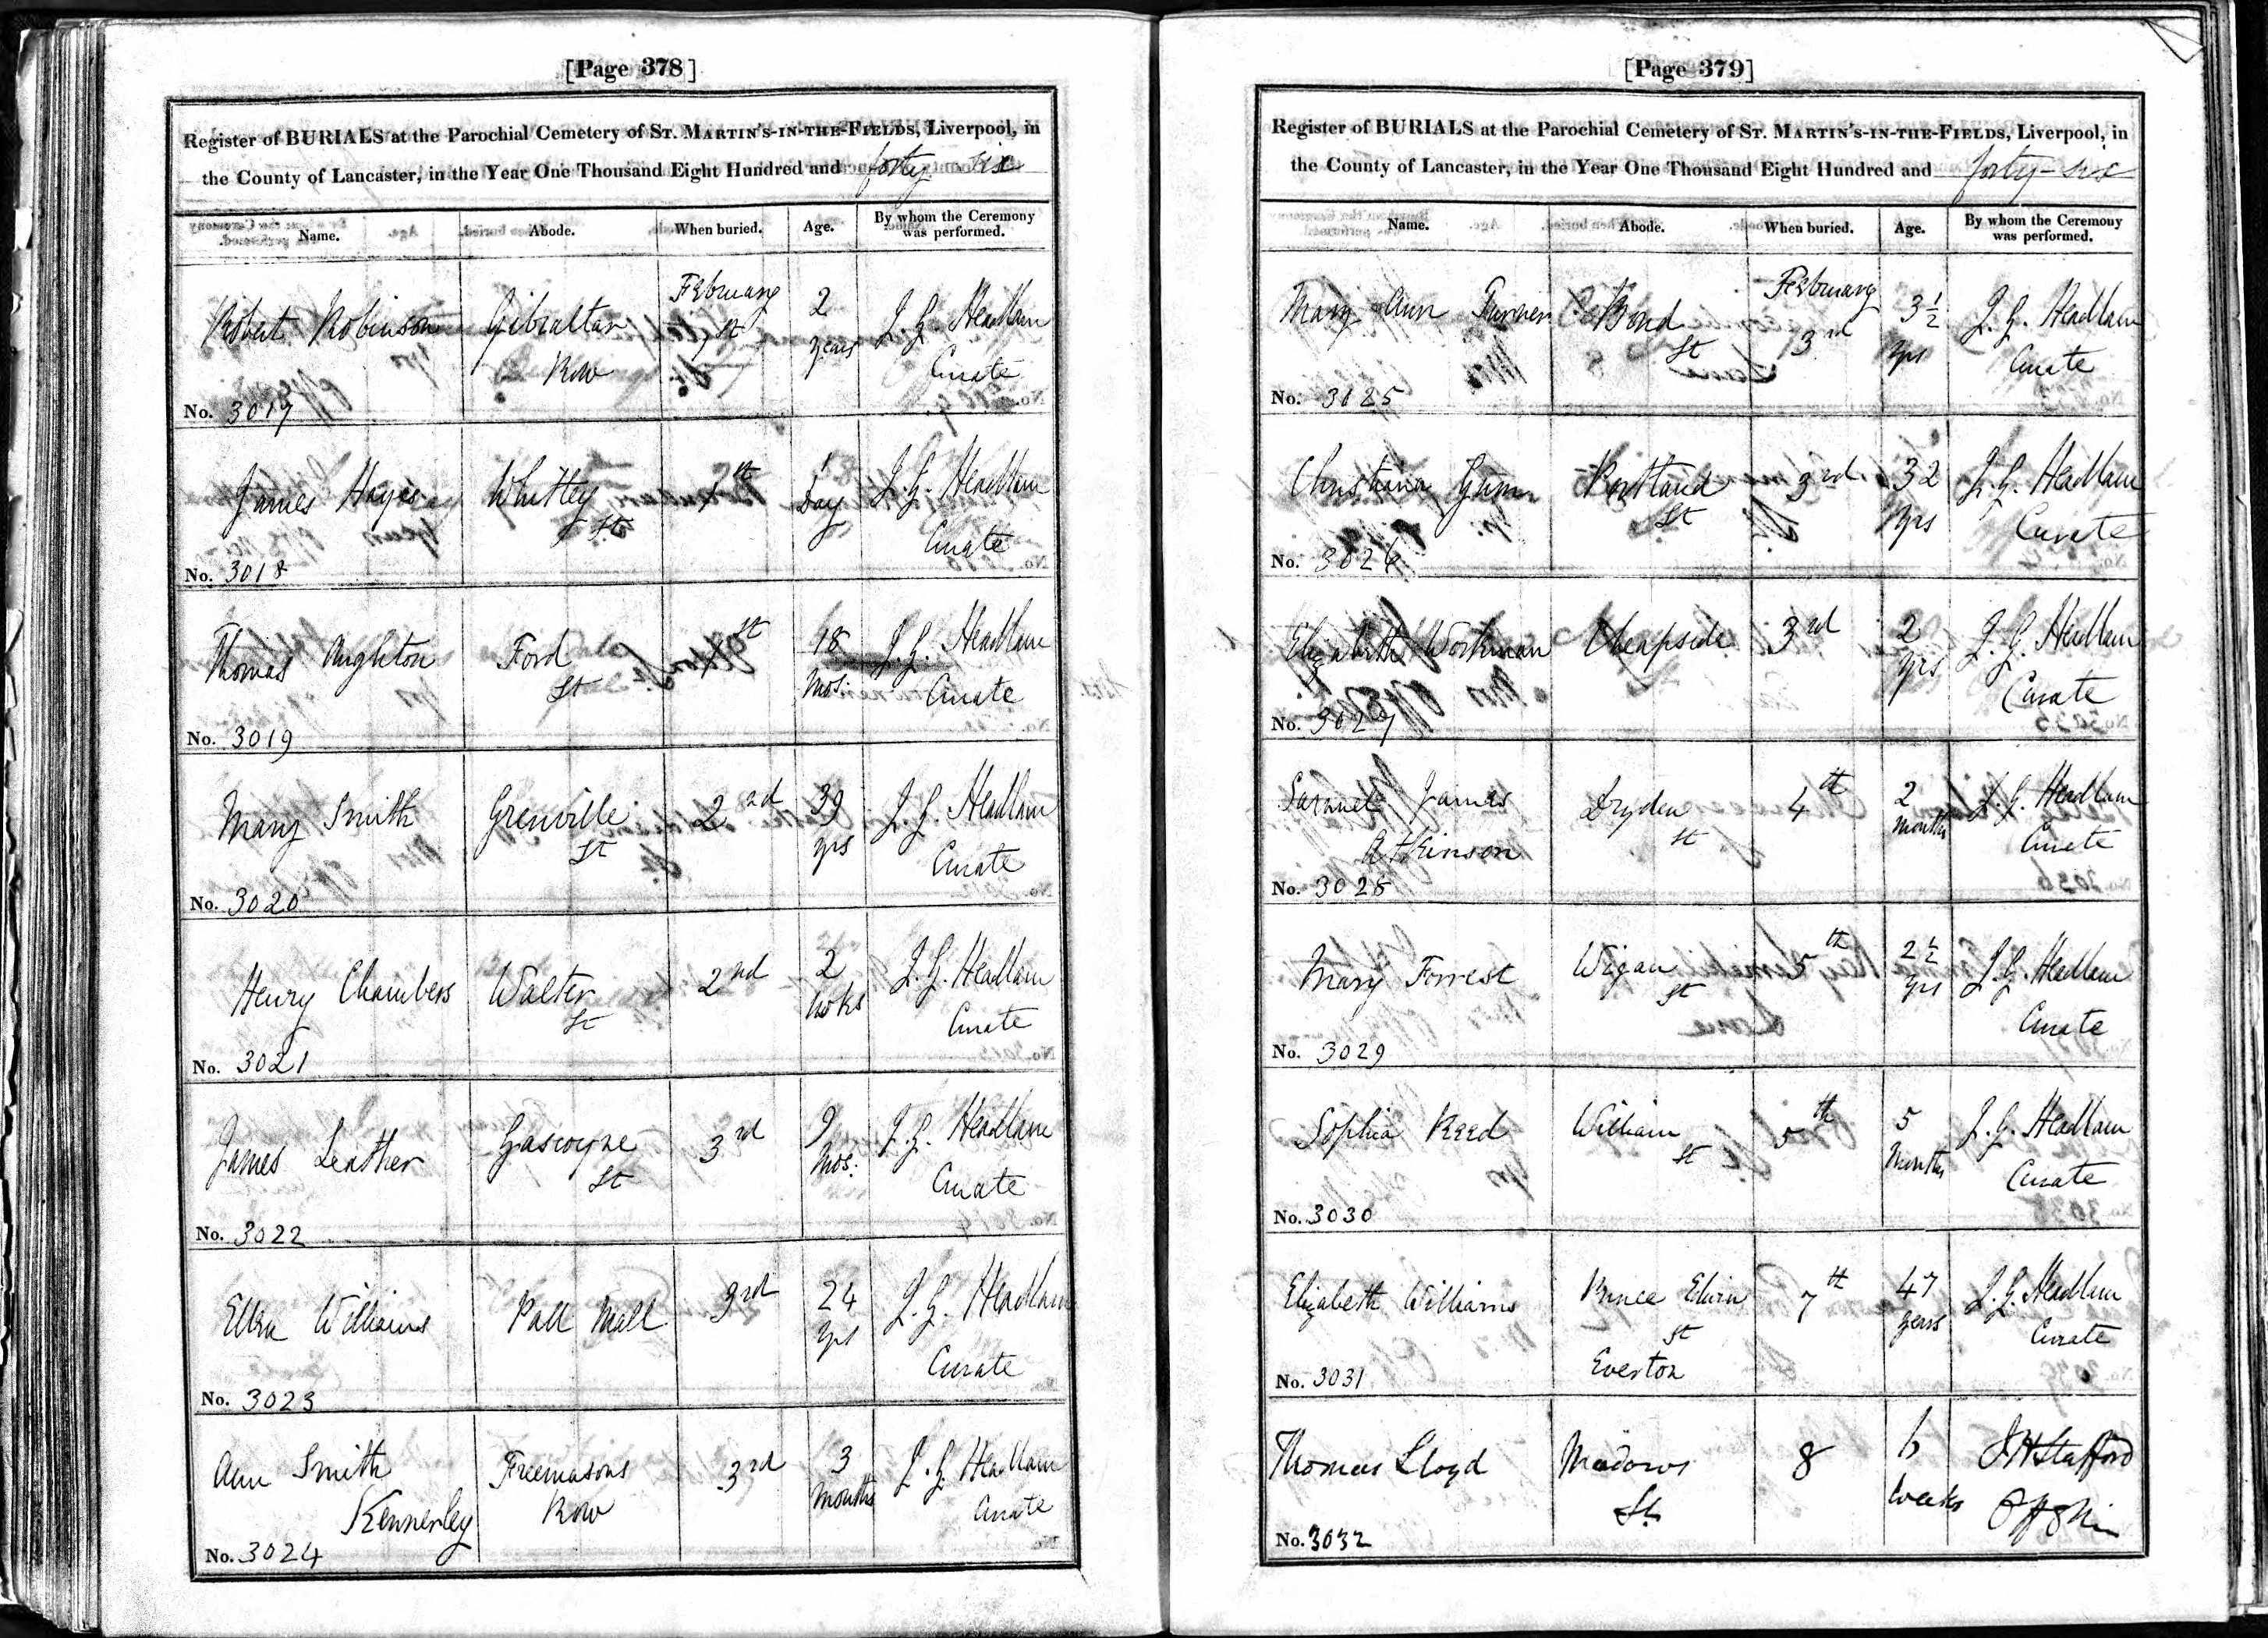 [Page 378]
Register of BURIALS at the Parochial Cemetery of ST. MARTIN'S-IN-THE-FIELDS, Liverpool, in
the County of Lancaster, in the Year One Thousand Eight Hundred and forty six
Name. Abode. When buried. Age. By whom the Ceremony was performed.
Robert Robinson Gibraltar Row February 1st 2 years J. G. Headlam Curate
No. 3017
James Hayes Whitley St 1st 1 Day J. G. Headlam Curate
No. 3018
Thomas Aughton Ford St 1st 18 Mos. J. G. Headlam Curate
No. 3019
Mary Smith Grenville St 2nd 39 yrs J. G. Headlam Curate
No. 3020
Henry Chambers Walter St 2nd 2 wks J. G. Headlam Curate
No. 3021
James Leather Gascoyne St 3rd 9 Mos. J. G. Headlam Curate
No. 3022
Ellen Williams Pall Mall 3rd 24 yrs J. G. Headlam Curate
No. 3023
Ann Smith Kennerley Freemasons Row 3rd 3 months J. G. Headlam Curate
No. 3024
[Page 379]
Register of BURIALS at the Parochial Cemetery of ST. MARTIN'S-IN-THE-FIELDS, Liverpool, in
the County of Lancaster, in the Year One Thousand Eight Hundred and forty-six
Name. Abode. When buried. Age. By whom the Ceremony was performed.
Mary Ann Turner Bond St February 3rd 3 1/2 yrs J. G. Headlam Curate
No. 3025
Christiana Portland St 3rd 32 yrs J. G. Headlam Curate
No. 3026
Elizabeth Workman Cheapside 3rd 2 yrs J. G. Headlam Curate
No. 3027
Samuel James Atkinson Dryden St 4th 2 months J. G. Headlam Curate
No. 3028
Mary Forrest Wigan St 5th 2 1/2 yrs J. G. Headlam Curate
No. 3029
Sophia Reed William St 5th 5 Months J. G. Headlam Curate
No. 3030
Elizabeth Williams Prince Edwin St Everton 7th 47 years J. G. Headlam Curate
No. 3031
Thomas Lloyd Meadows St 8 6 weeks J H Stafford
No. 3032